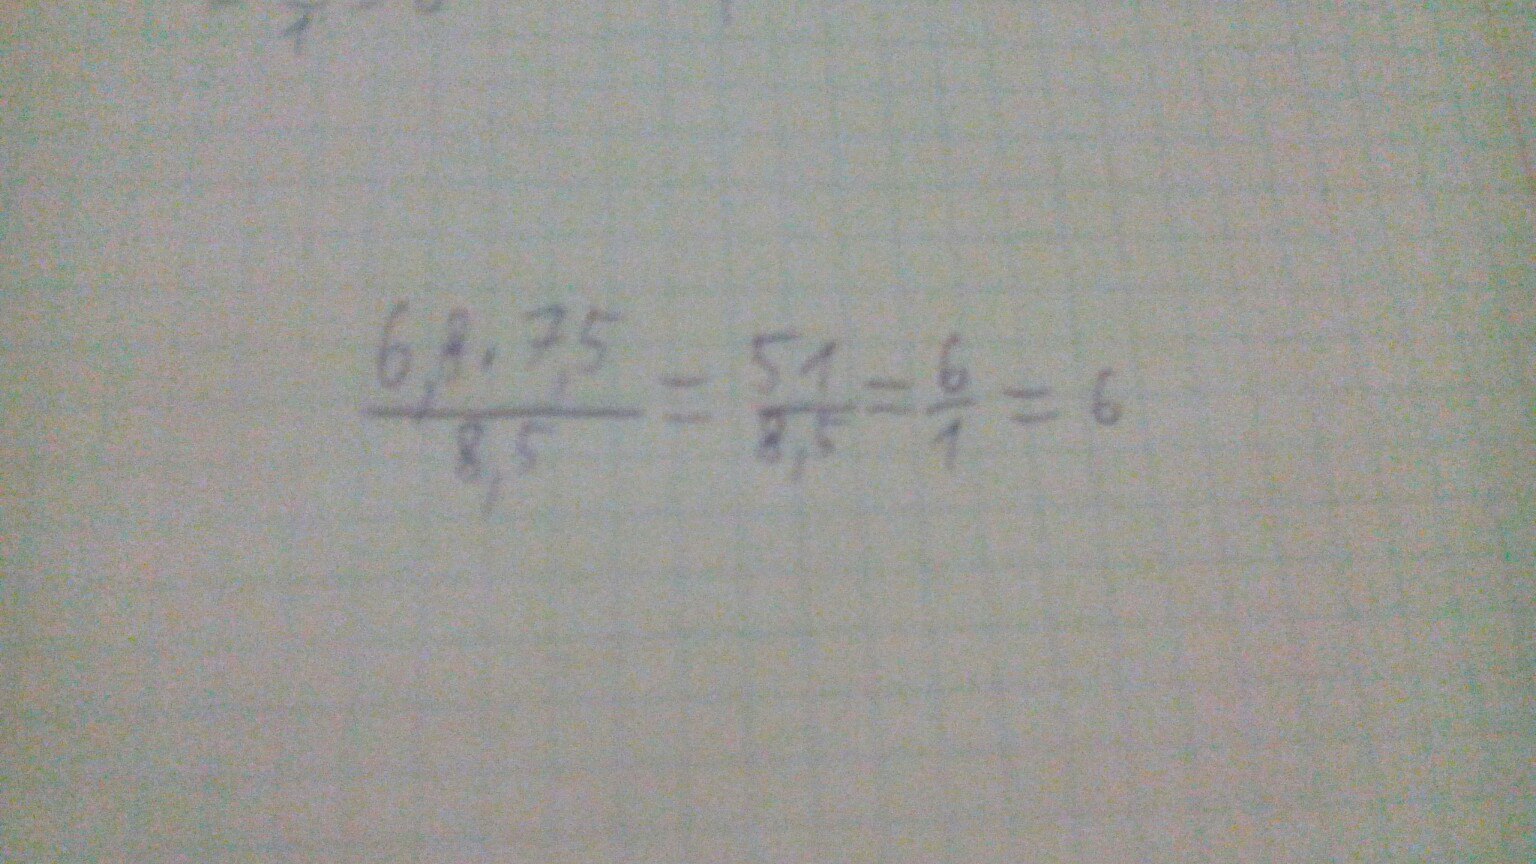 6,8 · 7,5 / 8,5 = 51 / 8,5 = 6 / 1 = 6